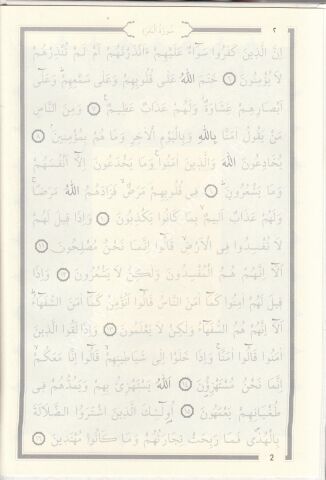 ٢ سُورَةُ البَقَرَةِ
إِنَّ الَّذِينَ كَفَرُوا سَوَاءٌ عَلَيْهِمْ ءَاَنْذَرْتَهُمْ اَمْ لَمْ تُنْذِرْهُمْ
لَا يُؤْمِنُونَ ﴿٦﴾ خَتَمَ اللهُ عَلٰى قُلُوبِهِمْ وَعَلٰى سَمْعِهِمْ وَعَلٰى
اَبْصَارِهِمْ غِشَاوَةٌ وَلَهُمْ عَذَابٌ عَظِيمٌ ﴿٧﴾ وَمِنَ النَّاسِ
مَنْ يَقُولُ اٰمَنَّا بِاللهِ وَبِالْيَوْمِ الْاٰخِرِ وَمَا هُمْ بِمُؤْمِنِينَ ﴿٨﴾
يُخَادِعُونَ اللهَ وَالَّذِينَ اٰمَنُوا وَمَا يَخْدَعُونَ اِلَّا اَنْفُسَهُمْ
وَمَا يَشْعُرُونَ ﴿٩﴾ فِى قُلُوبِهِمْ مَرَضٌ فَزَادَهُمُ اللهُ مَرَضًا
وَلَهُمْ عَذَابٌ اَلِيمٌ بِمَا كَانُوا يَكْذِبُونَ ﴿١٠﴾ وَاِذَا قِيلَ لَهُمْ
لَا تُفْسِدُوا فِى الْاَرْضِ قَالُوا اِنَّمَا نَحْنُ مُصْلِحُونَ ﴿١١﴾
اَلَا اِنَّهُمْ هُمُ الْمُفْسِدُونَ وَلٰكِنْ لَا يَشْعُرُونَ ﴿١٢﴾ وَاِذَا
قِيلَ لَهُمْ اٰمِنُوا كَمَا اٰمَنَ النَّاسُ قَالُوا اَنُؤْمِنُ كَمَا اٰمَنَ السُّفَهَاءُ
اَلَا اِنَّهُمْ هُمُ السُّفَهَاءُ وَلٰكِنْ لَا يَعْلَمُونَ ﴿١٣﴾ وَاِذَا لَقُوا الَّذِينَ
اٰمَنُوا قَالُوا اٰمَنَّا وَاِذَا خَلَوْا اِلٰى شَيَاطِينِهِمْ قَالُوا اِنَّا مَعَكُمْ
اِنَّمَا نَحْنُ مُسْتَهْزِؤُنَ ﴿١٤﴾ اَللهُ يَسْتَهْزِئُ بِهِمْ وَيَمُدُّهُمْ فِى
طُغْيَانِهِمْ يَعْمَهُونَ ﴿١٥﴾ اُولٰئِكَ الَّذِينَ اشْتَرَوُا الضَّلَالَةَ
بِالْهُدٰى فَمَا رَبِحَتْ تِجَارَتُهُمْ وَمَا كَانُوا مُهْتَدِينَ ﴿١٦﴾
2